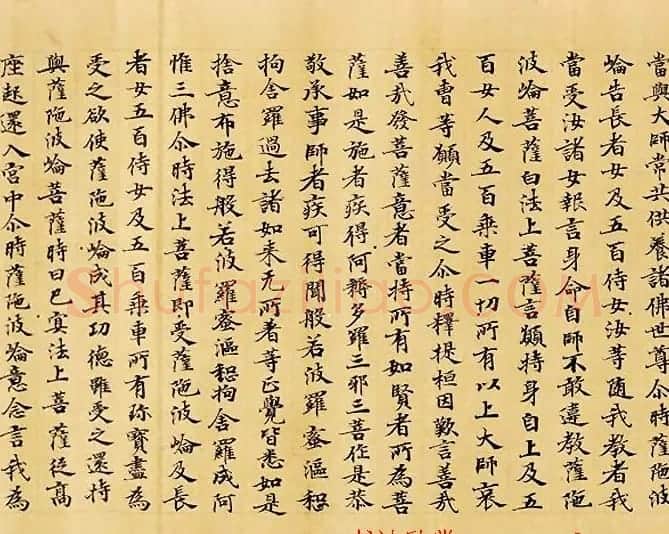 當與大師常共供養諸佛世尊尒時薩陁波
崘告長者女及五百侍女汝等随我教者我
當受汝諸女報言身命自師不敢違教薩陁
波崘菩薩白法上菩薩言願持身自上及五
百女人及五百乘車一切所有以上大師哀
我曹等願當受之尒時釋提桓因歎言善哉
善哉發菩薩意者當持所有如賢者所為菩
薩如是施者疾得阿耨多羅三耶三菩作是恭
敬承事師者疾可得聞般若波羅蜜漚惒
拘舍羅過去諸如来无所著等正覺皆悉如是
捨意布施得般若波羅蜜漚惒拘舍羅成阿
惟三佛尒時法上菩薩即受薩陁波崘及長
者女五百侍女及五百乘車所有珎寶盡為
受之欲使薩陁波崘成其功德雖受之還持
與薩陁波崘菩薩時日已㝠法上菩薩從高
座起還入宫中尒時薩陁波崘意念言我為
Shufaziliao.COM